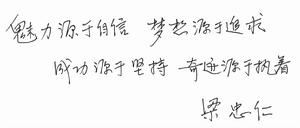 魅力源于自信 梦想源于追求
成功源于坚持 奇迹源于执着
梁忠仁